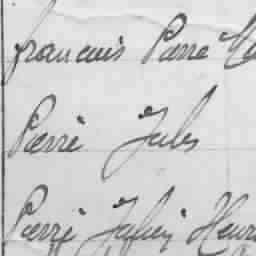 francois Pierre
Pierre Jules
Pierre Julien Henri